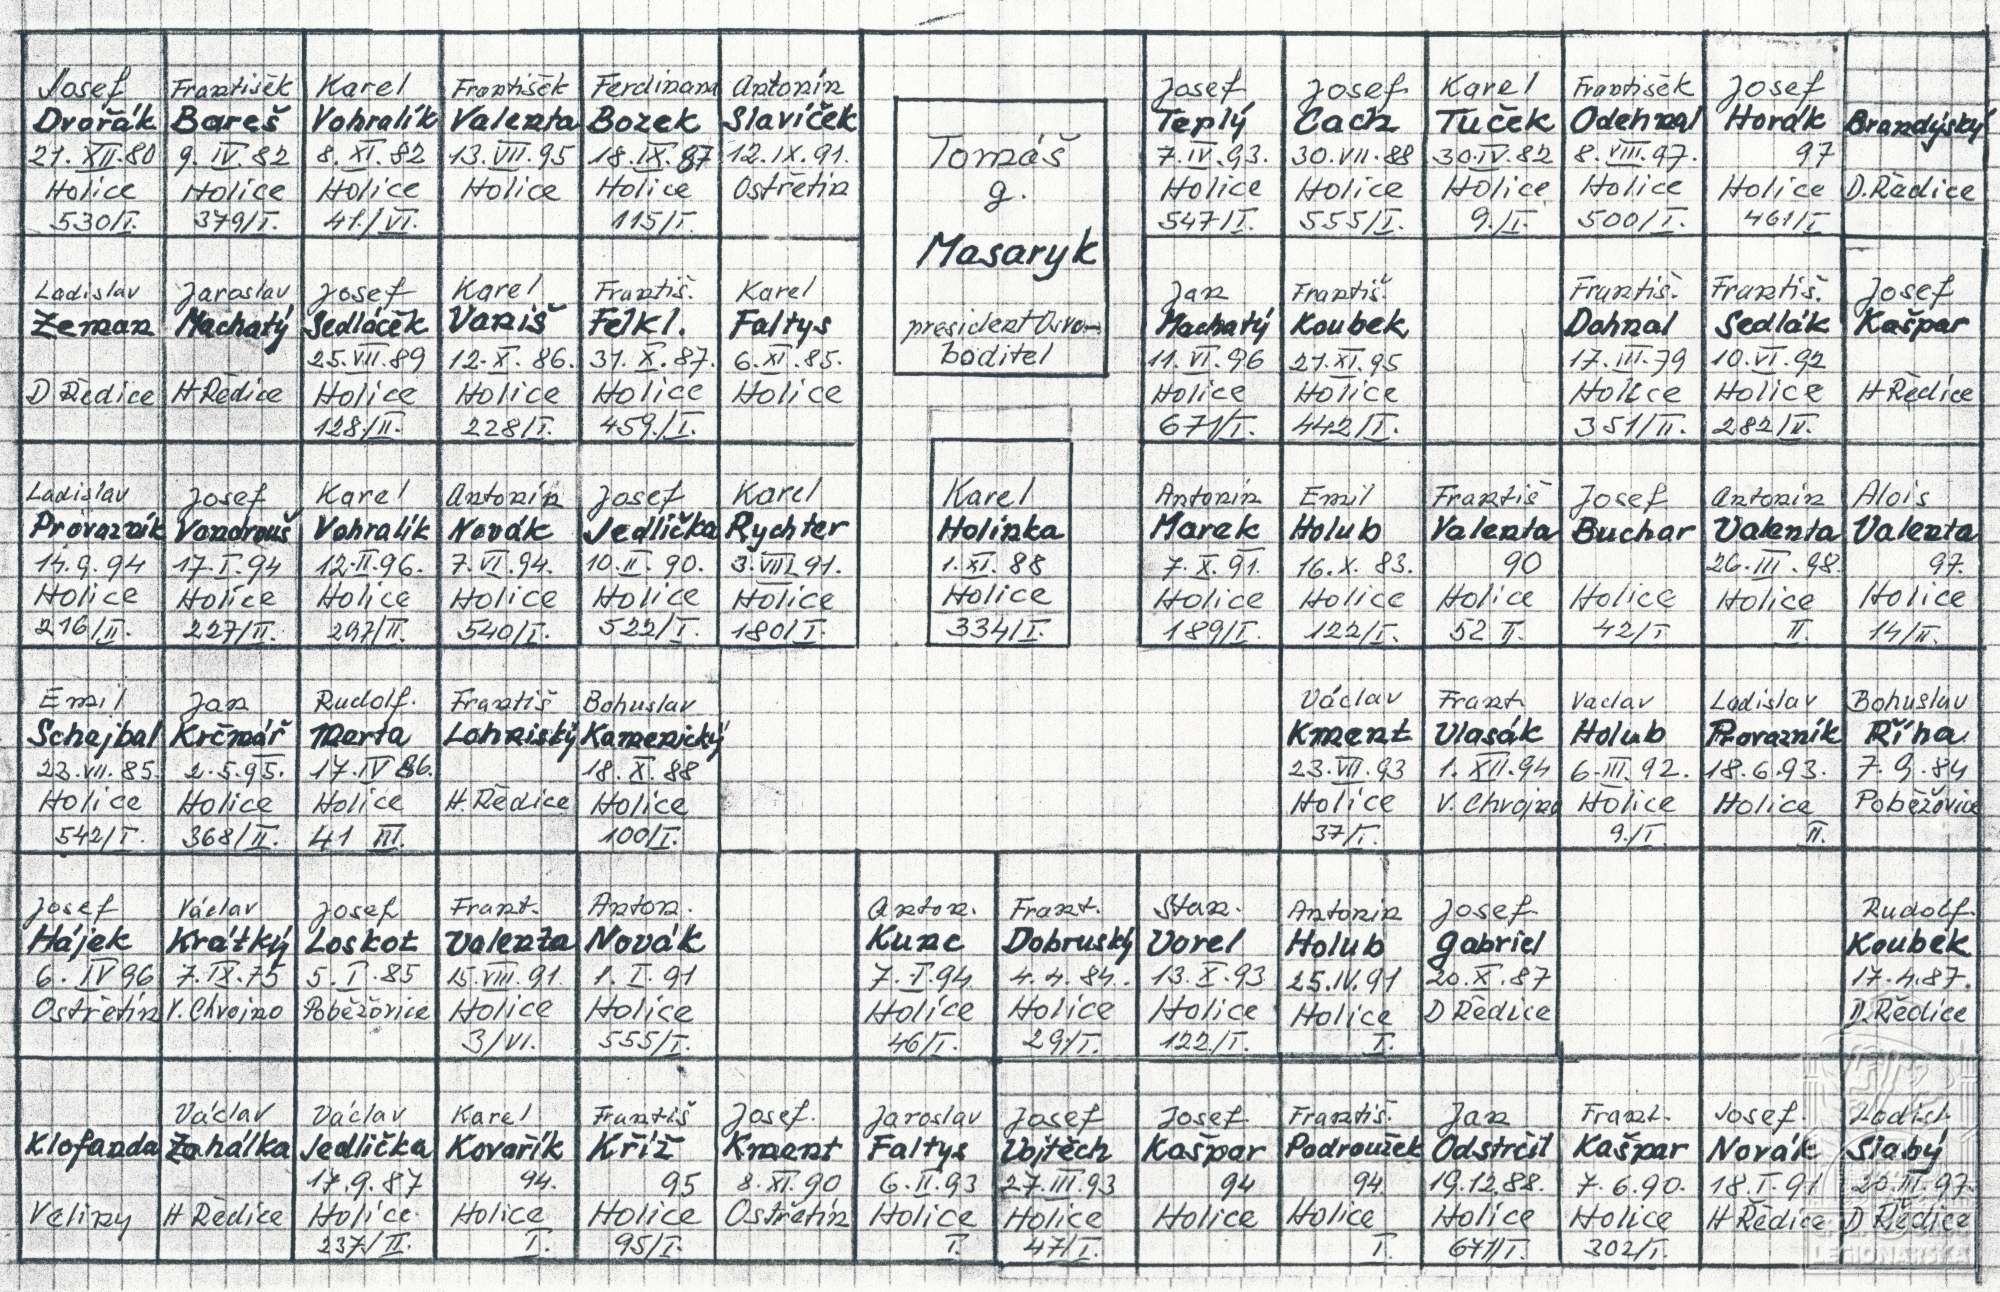 Josef
Dvořák
21.XII.80
Holice
530/I.
František
Bareš
9.IV.82
Holice
379/I.
Karel
Vohralík
8.XI.82
Holice
41./VI.
František
Valenta
13.VII.95
Holice
Ferdinand
Bozek
18.IX.87
Holice
115/I.
Antonín
Slavíček
12.IX.91.
Ostřetín
Tomáš
g.
Masaryk
president Osvo-
boditel
Josef
Teplý
7.IV.93.
Holice
547/I.
Josef
Cach
30.VII.88
Holice
555/I.
Karel
Tuček
30.IV.82
Holice
9./I.
František
Odehnal
8.VIII.97.
Holice
500/I.
Josef
Horák
97
Holice
461/I
Brandýský
D.Ředice
Ladislav
Zeman
D Ředice
Jaroslav
Machatý
H Ředice
Josef
Sedláček
25.VII.89
Holice
128./II.
Karel
Vaniš
12.X.86.
Holice
228/I.
Františ.
Felkl.
31.X.87.
Holice
459./I.
Karel
Faltys
6.XI.85.
Holice
Jan
Machatý
11.VI.96
Holice
671/I.
Františ.
Koubek
21.XI.95
Holice
442/I.
Františ.
Dohnal
17.III.79
Holice
351/II.
Františ.
Sedlák
10.VI.92
Holice
282/II.
Josef
Kašpar
H Ředice
Ladislav
Provazník
14.9.94
Holice
216/II.
Josef
Vondrouš
17.I.94
Holice
227/II.
Karel
Vohralík
12.II.96.
Holice
297/II.
Antonín
Novák
7.VI.94.
Holice
540/I.
Josef
Jedlička
10.II.90.
Holice
522/I.
Karel
Rychter
3.VIII.91.
Holice
180/I.
Karel
Holinka
1.XI.88
Holice
334/I.
Antonín
Marek
7.X.91.
Holice
189/I.
Emil
Holub
16.X.83.
Holice
122/I.
Františ
Valenta
90
Holice
52 II.
Josef
Buchar
Holice
42/I
Antonín
Valenta
26.III.98.
Holice
II.
Alois
Valenta
97.
Holice
14/II.
Emil
Schejbal
23.VII.85.
Holice
542/I.
Jan
Krčmář
2.5.95.
Holice
368/II.
Rudolf.
Marta
17.IV 86.
Holice
41 III.
Františ
Lohniský
H.Ředice
Bohuslav
Kamenický
18.XI.88
Holice
100/I.
Václav
Kment
23.VII.93
Holice
37/I.
Frant.
Vlasák
1.XII.94
V.Chvojno
Vaclav
Holub
6.III.92.
Holice
9./I.
Ladislav
Provazník
18.6.93.
Holice
II.
Bohuslav
Říha
7.9.84
Poběžovice
Josef
Hájek
6.IV 96
Ostřetín
Václav
Krátký
7.IX.75
V.Chvojno
Josef
Loskot
5.I.85
Poběžovice
Frant.
Valenta
15.VIII.91.
Holice
3/VI.
Anton.
Novák
1.I.91
Holice
555/I.
Anton.
Kunc
7.I.94.
Holice
46/I.
Frant.
Dobruský
4.4.84.
Holice
29/I.
Stan.
Vorel
13.X.93
Holice
122./I.
Antonín
Holub
25.IV.91
Holice
I.
Josef
Gabriel
20.X.87
D Ředice
Rudolf.
Koubek
17.4.87.
D.Ředice
Klofanda
Veliny
Václav
Zahálka
H Ředice
Václav
Jedlička
17.9.87
Holice
237/II.
Karel
Kovařík
94.
Holice
I.
Františ
Kříž
95
Holice
95/I.
Josef.
Kment
8.XI.90
Ostřetín
Jaroslav
Faltys
6.II.93
Holice
I.
Josef
Vojtěch
27.III.93
Holice
47/I.
Josef
Kašpar
94
Holice
Františ.
Podroužek
94.
Holice
I.
Jan
Odstrčil
19.12.88.
Holice
671/I.
Frant.
Kašpar
7.6.90.
Holice
302/I.
Josef.
Novák
18.I.91
H Ředice
Ladisl.
Slabý
20.III.97.
D Ředice
LEGIONÁŘSKÁ